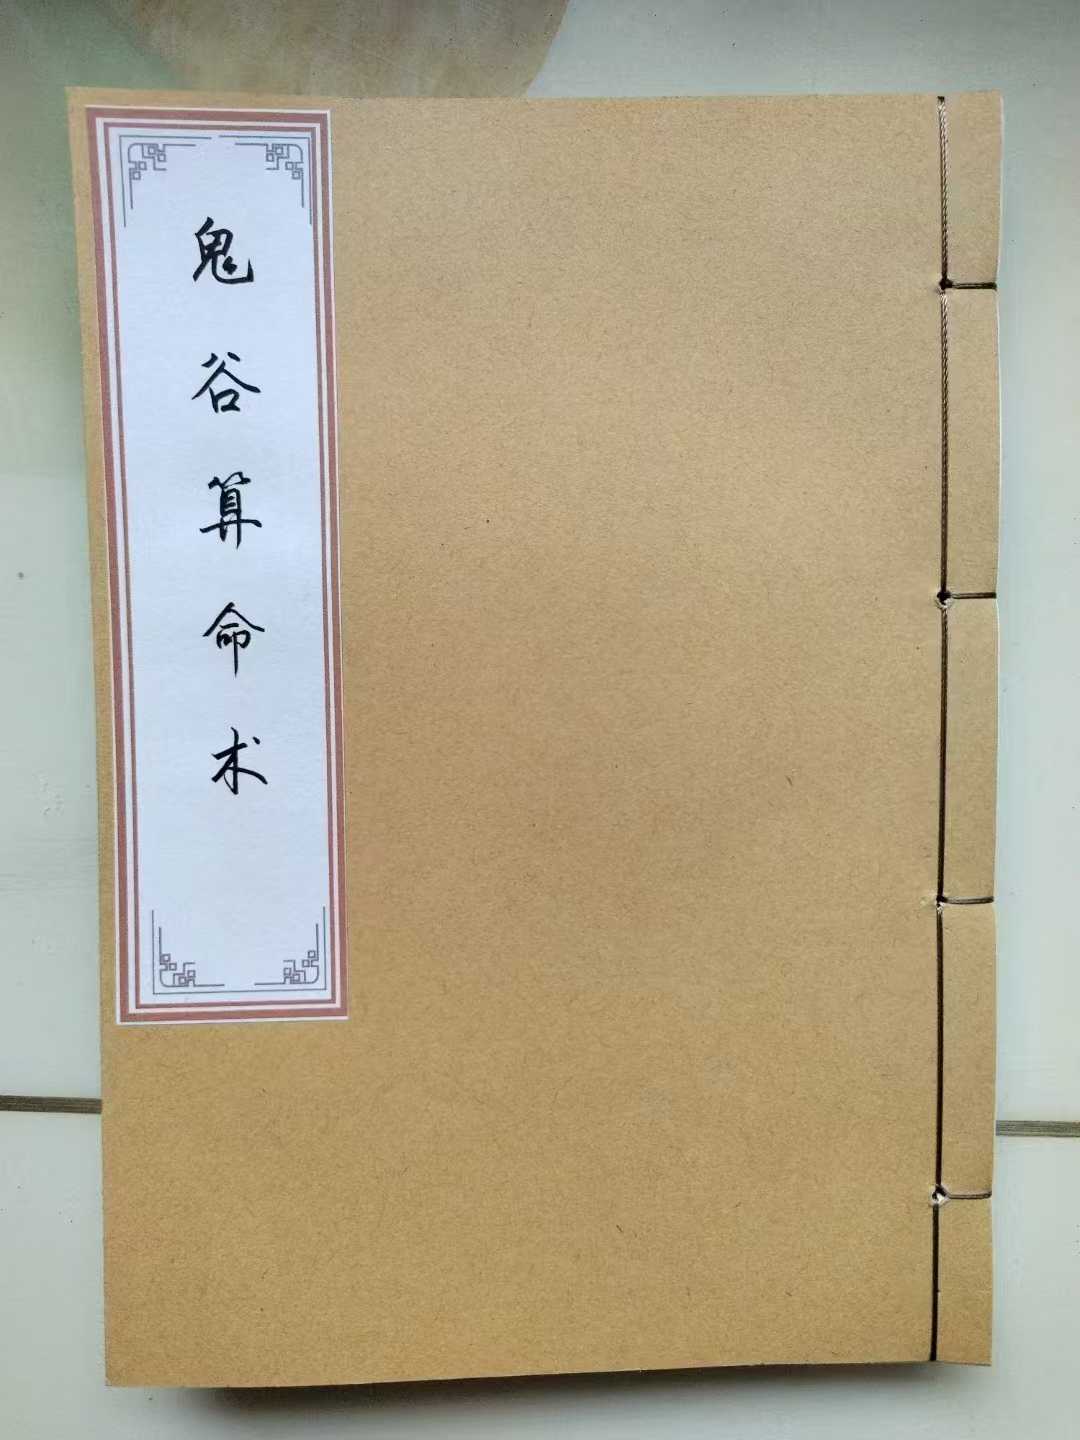 鬼谷算命术